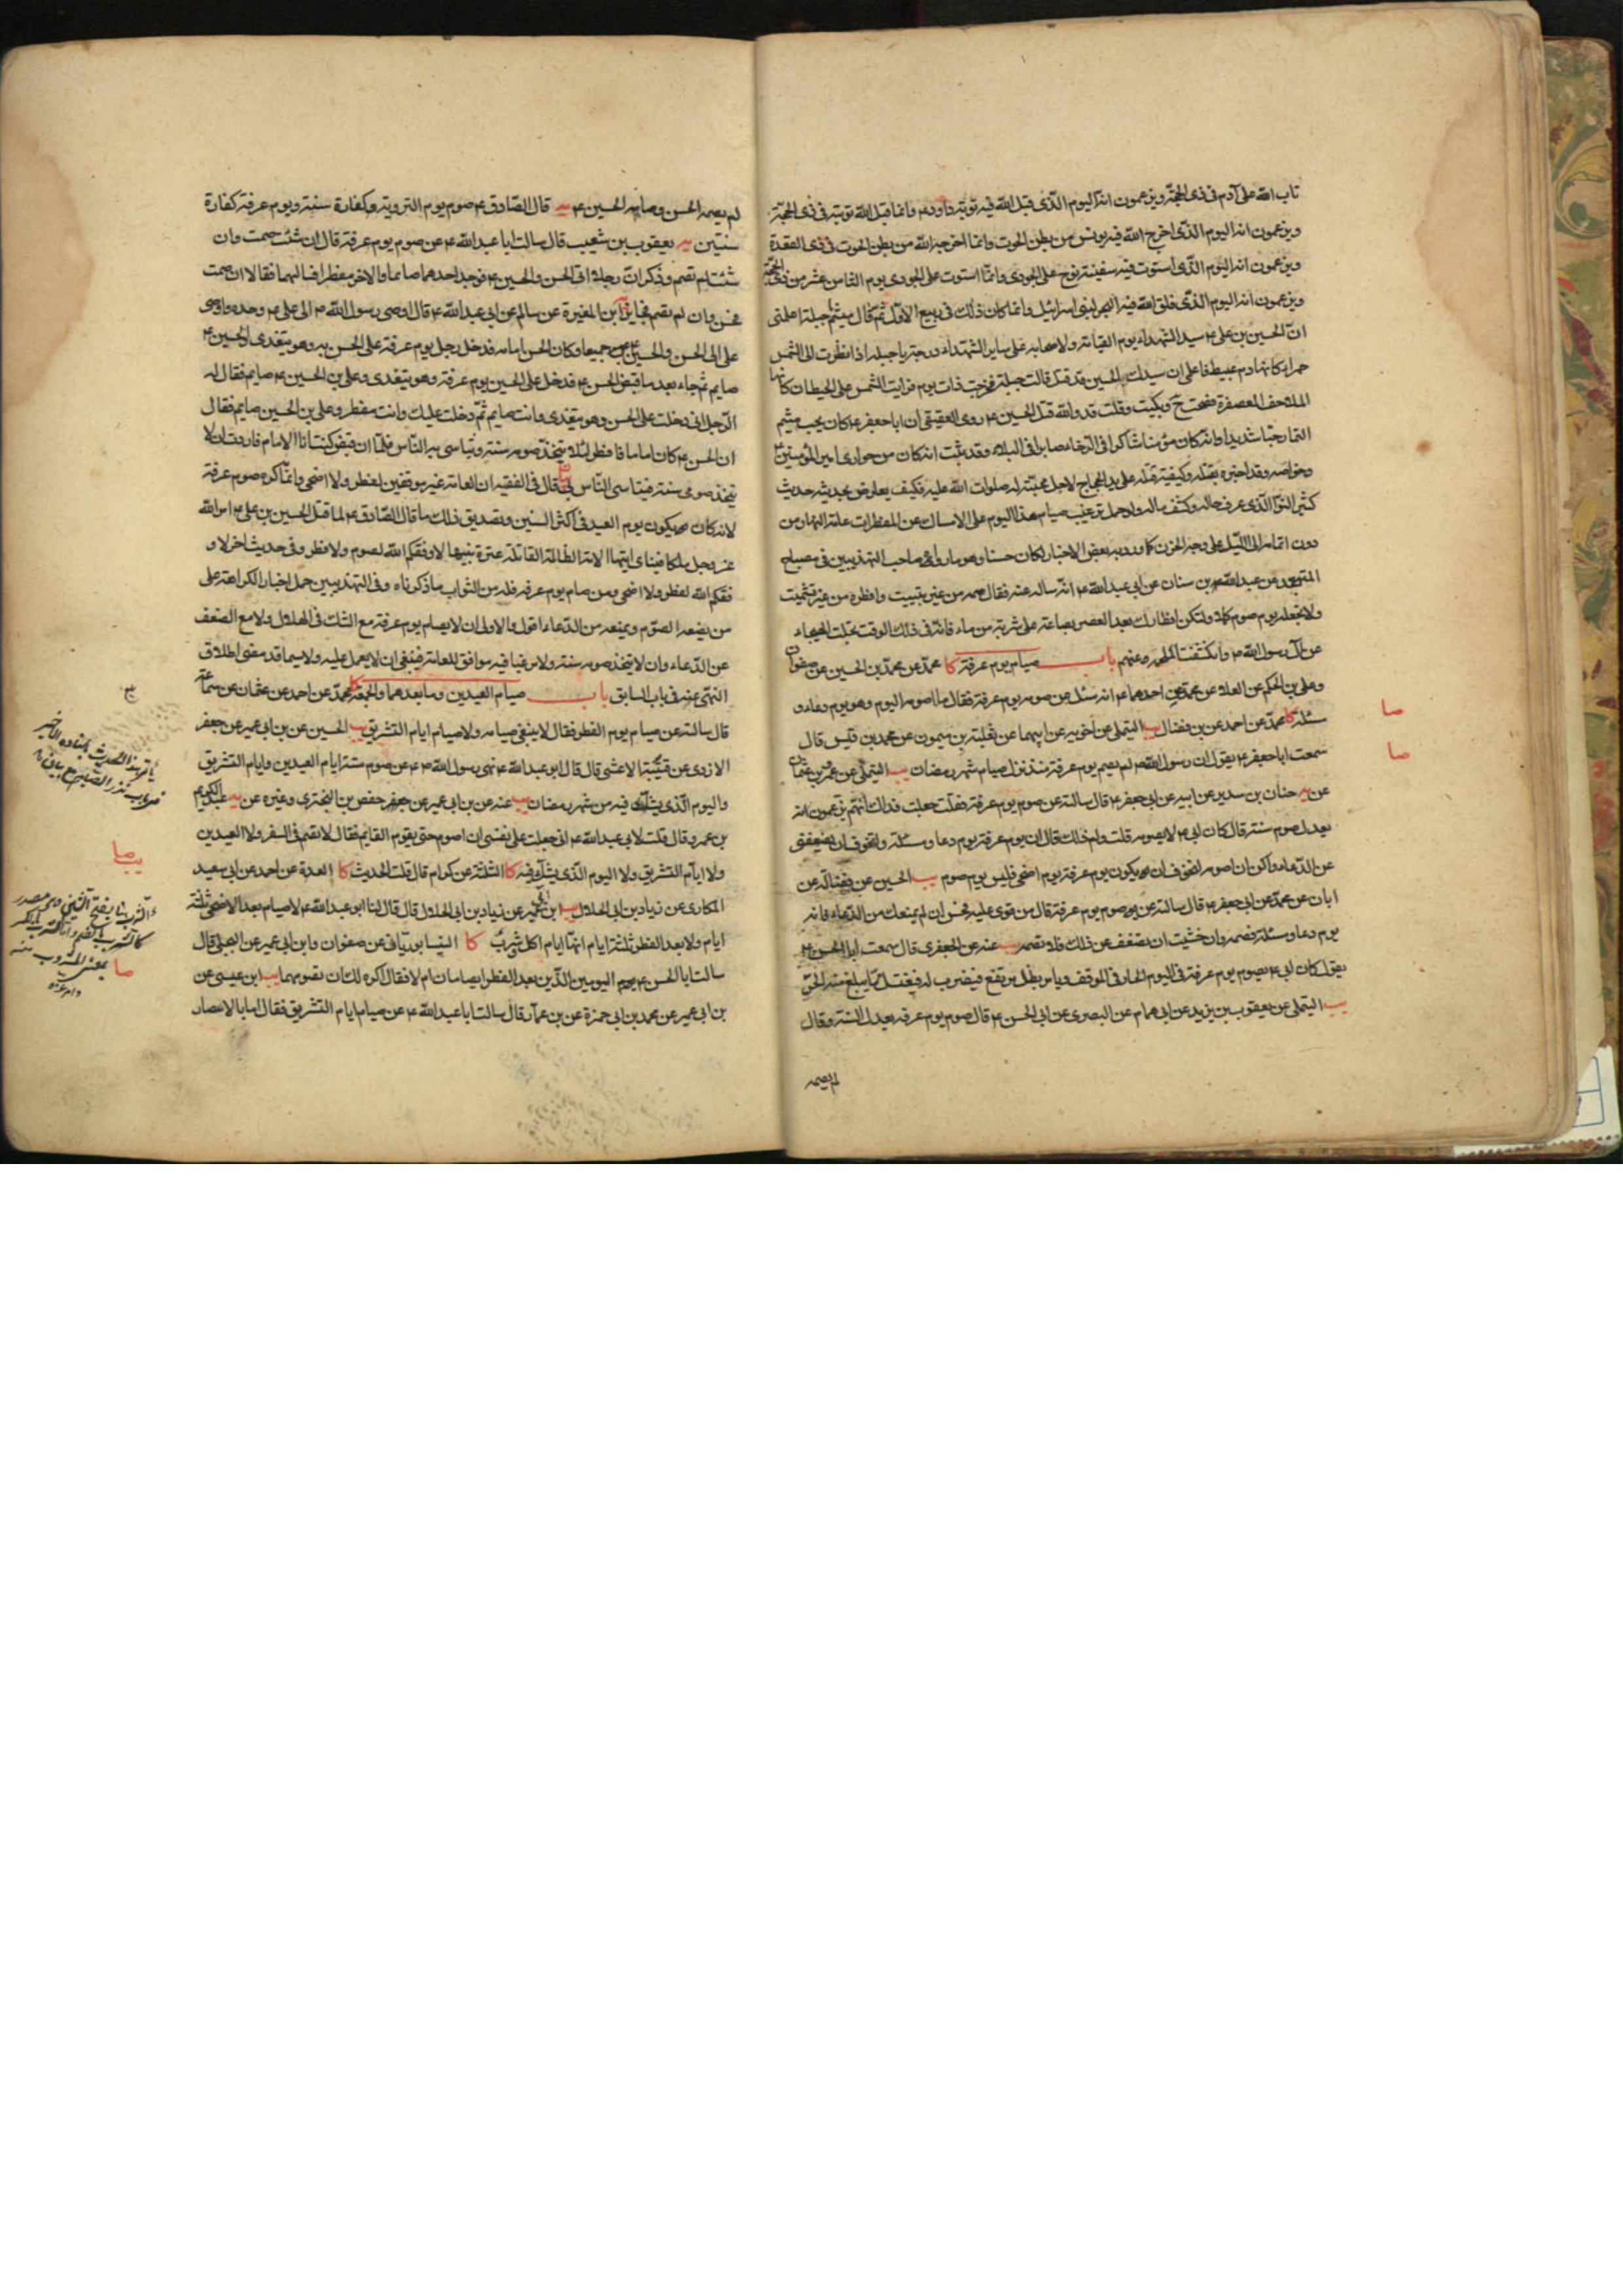 تاب الله على آدم في ذي الحجة ويزعمون انه اليوم الذي قبل الله فيه توبة داود ع وانما قبل الله توبته في ذي الحجة
ويزعمون انه اليوم الذي اخرج الله فيه يونس من بطن الحوت وانما اخرجه الله من بطن الحوت في ذي القعدة
ويزعمون انه اليوم الذي استوت فيه سفينة نوح على الجودي وانما استوت على الجودي يوم الثامن عشر من ذي الحجة
ويزعمون انه اليوم الذي فلق الله فيه البحر لبني اسرائيل وانما كان ذلك في ربيع الاول ثم قال ميثم يا جبلة اعلمي
ان الحسين بن علي ع سيد الشهداء يوم القيامة ولاصحابه على ساير الشهداء درجة يا جبلة اذا نظرت الى الشمس
حمراء كانها دم عبيط فاعلمي ان سيدك الحسين قد قتل قالت جبلة فخرجت ذات يوم فرايت الشمس على الحيطان كانها
الملاحف المعصفرة فصحت ح وبكيت وقلت قد والله قتل الحسين ع روى العقيقي ان ابا جعفر ع كان يحب ميثم
التمار حبا شديدا وانه كان مؤمنا شاكرا في الرخاء صابرا في البلاء وقد ثبت انه كان من حواري امير المؤمنين ع
وخواصه وقد اخبره بقتله وكيفية قتله على يد الحجاج لاجل محبته له صلوات الله عليه فكيف يعارض بحديثه حديث
كثير النوا الذي عرف حاله وكشف ماله ولو حمل ترغيب صيام هذا اليوم على الامساك عن المفطرات عامة النهار من
دون اتمامه الى الليل على وجه الحزن كما ورد به بعض الاخبار لكان حسنا وهو ما رواه صاحب التهذيبين في مصباح
المتهجد عن عبد الله بن سنان عن ابي عبد الله ع انه ساله عنه فقال صمه من غير تبييت وافطره من غير تشميت
ولا تجعله يوم صوم كملا وليكن افطارك بعد العصر بساعة على شربة من ماء فانه في ذلك الوقت تجلت الهيجاء
عن آل رسول الله ص وانكشفت الملحمة عنهم باب صيام يوم عرفة كا محمد عن محمد بن الحسين عن صفوان
وعلي بن الحكم عن العلا عن محمد عن احدهما ع انه سئل عن صوم يوم عرفة فقال ما اصومه اليوم وهو يوم دعاء و
صا
مسئلة كا محمد عن احمد عن بن فضال يب التيملي عن اخويه عن ابيهما عن ثعلبة بن ميمون عن محمد بن قيس قال
صا
سمعت ابا جعفر ع يقول ان رسول الله ص لم يصم يوم عرفة منذ نزل صيام شهر رمضان يب التيملي عن عمرو بن عثمان
عن يه حنان بن سدير عن ابيه عن ابي جعفر ع قال سالته عن صوم يوم عرفة فقلت جعلت فداك انهم يزعمون انه
يعدل صوم سنة قال كان ابي ع لا يصومه قلت ولم ذلك قال ان يوم عرفة يوم دعا ومسئلة واتخوف ان يضعفني
عن الدعاء واكره ان اصومه اتخوف ان يكون يوم عرفة يوم اضحى فليس يوم صوم يب الحسين عن فضالة عن
ابان عن محمد عن ابي جعفر ع قال سالته عن صوم يوم عرفة قال من قوي عليه فحسن ان لم يمنعك من الدعاء فانه
يوم دعا ومسئلة فصمه وان خشيت ان تضعف عن ذلك فلا تصمه يب عنه عن الجعفري قال سمعت ابا الحسن ع
يقول كان ابي ع يصوم يوم عرفة في اليوم الحار في الموقف ويامر بظل مرتفع فيضرب له فيغتسل مما يبلغ منه الحر
يب التيملي عن يعقوب بن يزيد عن ابي همام عن البصري عن ابي الحسن ع قال صوم يوم عرفة يعدل السنة وقال
لم يصمه
لم يصمه الحسن وصامه الحسين ع يه قال الصادق ع صوم يوم التروية كفارة سنة ويوم عرفة كفارة
سنتين يه يعقوب بن شعيب قال سالت ابا عبد الله ع عن صوم يوم عرفة قال ان شئت صمت وان
شئت لم تصم وذكر ان رجلا اتى الحسن والحسين ع فوجد احدهما صائما والاخر مفطرا فسالهما فقالا ان صمت
فحسن وان لم تصم فجايز يه ابن المغيرة عن سالم عن ابي عبد الله ع قال اوصى رسول الله ص الى علي ع وحده واوصى
علي الى الحسن والحسين ع جميعا وكان الحسن امامه فدخل رجل يوم عرفة على الحسن ع وهو يتغدى والحسين ع
صايم ثم جاء بعد ما قبض الحسن ع فدخل على الحسين يوم عرفة وهو يتغدى وعلي بن الحسين ع صايم فقال له
الرجل اني دخلت على الحسن وهو يتغدى وانت صايم ثم دخلت عليك وانت مفطر وعلي بن الحسين صايم فقال
ان الحسن ع كان اماما فافطر لئلا يتخذ صومه سنة ويتاسى به الناس فلما ان قبض كنت انا الامام فاردت ان لا
يتخذ صومي سنة فيتاسى الناس بي قال في الفقيه ان العامة غير موفقين لفطر ولا اضحى وانما كره صوم عرفة
لانه كان يكون يوم العيد في اكثر السنين وتصديق ذلك ما قال الصادق ع لما قتل الحسين بن علي ع امر الله
عز وجل ملكا فنادى ايتها الامة الظالمة القاتلة عترة نبيها لا وفقكم الله لصوم ولا فطر وفي حديث اخر لا و
فقكم الله لفطر ولا اضحى ومن صام يوم عرفة فله من الثواب ما ذكرناه وفي التهذيبين حمل اخبار الكراهة على
من يضعفه الصوم ويمنعه من الدعاء اقول والاولى ان لا يصام يوم عرفة مع الشك في الهلال ولا مع الضعف
عن الدعاء وان لا يتخذ صومه سنة ولا مرغبا فيه موافق للعامة فينبغي ان لا يعمل عليه ولا سيما قد مضى اطلاق
النهي عنه في باب السابق باب صيام العيدين وما بعدهما والجمعة كا محمد عن احمد عن عثمان عن سماعة
قال سالته عن صيام يوم الفطر فقال لا ينبغي صيامه ولا صيام ايام التشريق يب الحسين عن بن ابي عمير عن جعفر
الازدي عن قتيبة الاعشى قال قال ابو عبد الله ع نهى رسول الله ص عن صوم ستة ايام العيدين وايام التشريق
واليوم الذي يشك فيه من شهر رمضان يب عنه عن بن ابي عمير عن جعفر حفص بن البختري وغيره عن يه عبد الكريم
بن عمرو قال قلت لابي عبد الله ع اني جعلت على نفسي ان اصوم حتى يقوم القايم فقال لا تصم في السفر ولا العيدين
يب صا
ولا ايام التشريق ولا اليوم الذي يشك فيه كا الثلثة عن كرام قال قلت الحديث كا العدة عن احمد عن ابي سعيد
المكاري عن زياد بن ابي الحلال يب ابن ابي عمير عن زياد بن ابي الحلال قال قال لنا ابو عبد الله ع لا صيام بعد الاضحى ثلثة
ايام ولا بعد الفطر ثلثة ايام انها ايام اكل وشرب كا النيسابوريان عن صفوان وابن ابي عمير عن البجلي قال
صا
سالت ابا الحسن ع عن اليومين الذين بعد الفطر ايصامان ام لا فقال اكره لك ان تصومهما يب ابن عيسى عن
بن ابي عمير عن محمد بن ابي حمزة عن بن عمار قال سالت ابا عبد الله ع عن صيام ايام التشريق فقال اما بالامصار